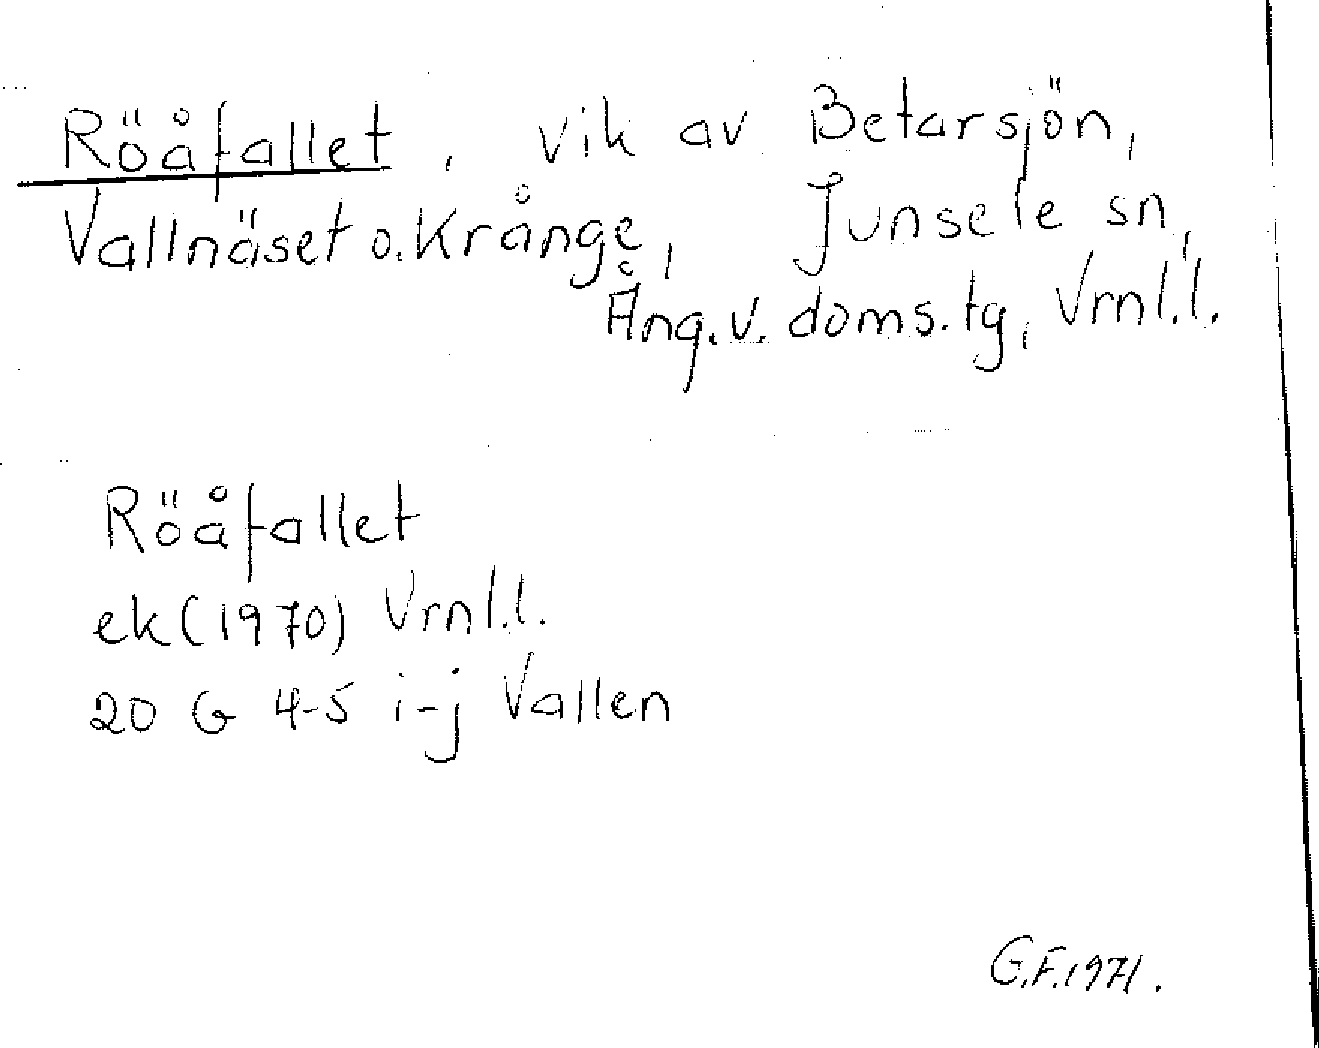 Röåfallet, vik av Betarsjön,
Vallnäset o. Krånge, Junsele sn,
Ång. v. doms. tg, Vrnl.l.
Röåfallet
ek (1970) Vrnl.l.
20 G 4-5 i-j Vallen
G.F. 1971.